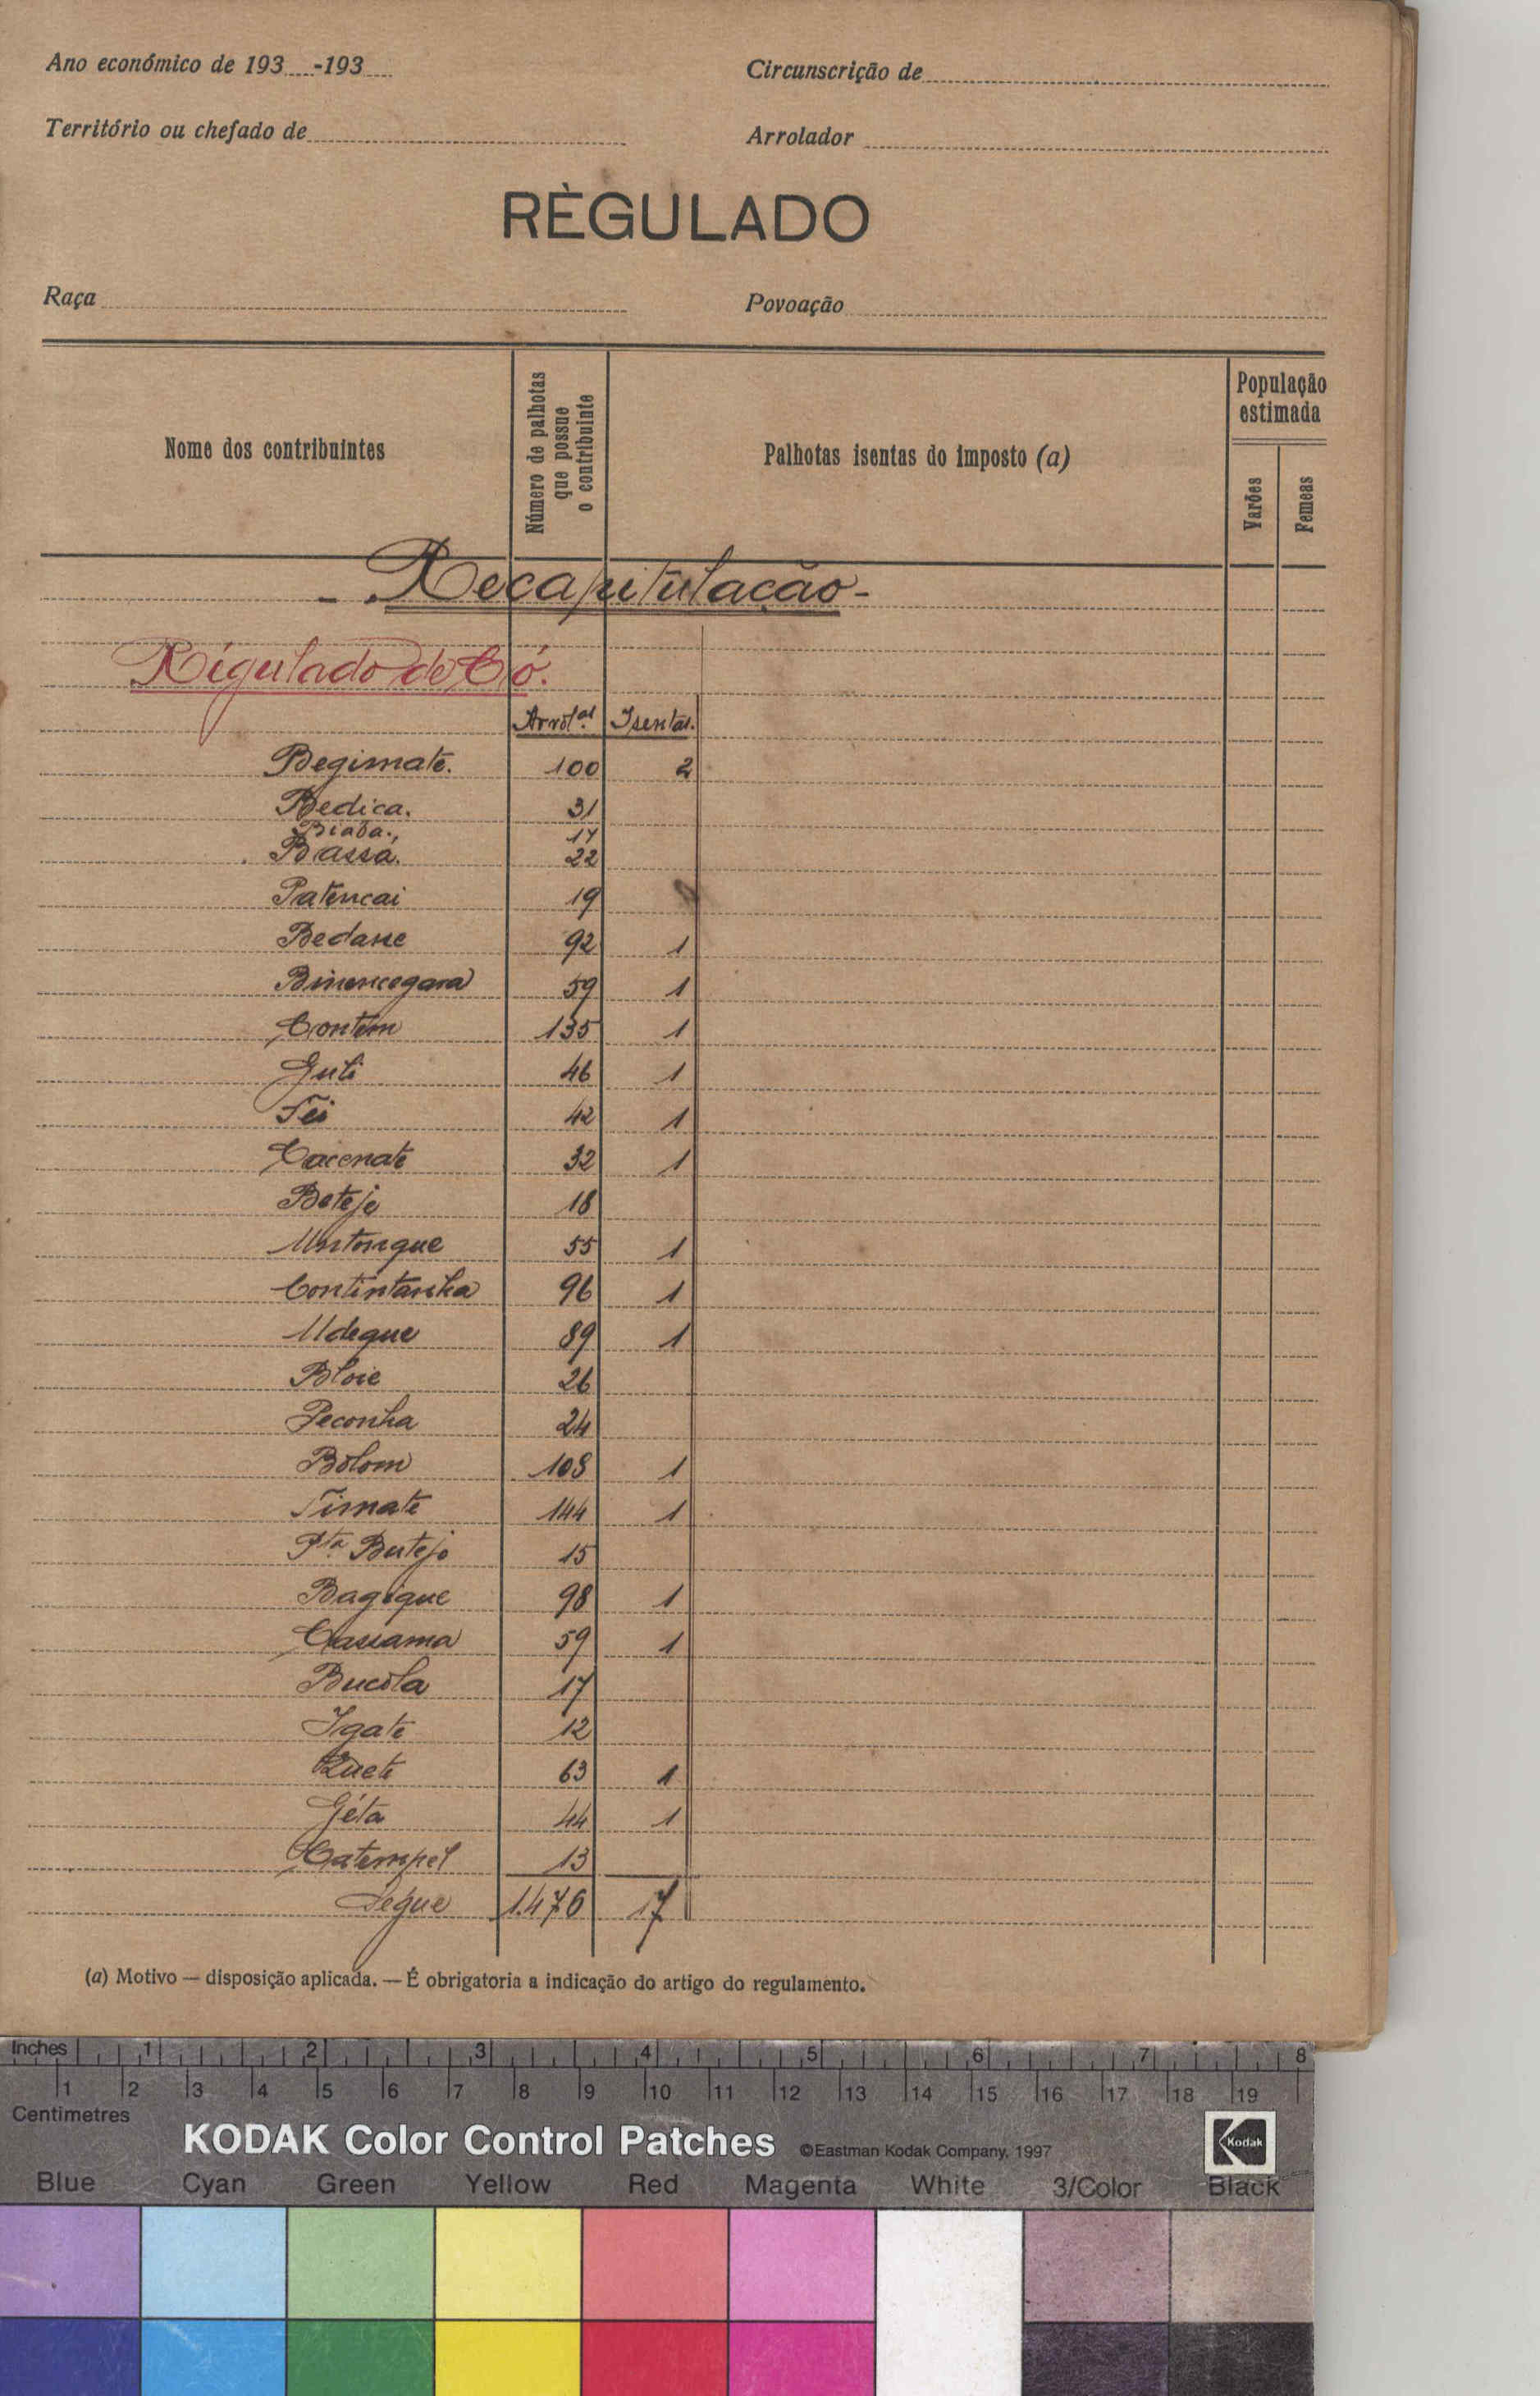 Ano económico de 193 -193
Circunscrição de
Território ou chefado de
Arrolador
RÈGULADO
Raça
Povoação
Nome dos contribuintes
Número de palhotas que possue o contribuinte
Palhotas isentas do imposto (a)
População estimada
Varões
Femeas
- Recapitulação -
Régulado de Có.
Arrol.as Isentas.
Begimate. 100 2
Bedica. 31
Biaba. 17
Bassá. 22
Patencai 19
Bedane 92 1
Binencegara 59 1
Contem 135 1
Guli 46 1
Tei 42 1
Cacenate 32 1
Beteje 18
Untongue 55 1
Contintanha 96 1
Udeque 89 1
Bloie 26
Peconha 24
Bolom 108 1
Timate 144 1
P.ta Butejo 15
Bagique 98 1
Cassama 59 1
Bucola 17
Igate 12
Quete 63 1
Géta 44 1
Catempel 13
Segue 1.476 17
(a) Motivo — disposição aplicada. — É obrigatoria a indicação do artigo do regulamento.
Inches 1 2 3 4 5 6 7 8
1 2 3 4 5 6 7 8 9 10 11 12 13 14 15 16 17 18 19
Centimetres
KODAK Color Control Patches ©Eastman Kodak Company, 1997 Kodak
Blue Cyan Green Yellow Red Magenta White 3/Color Black